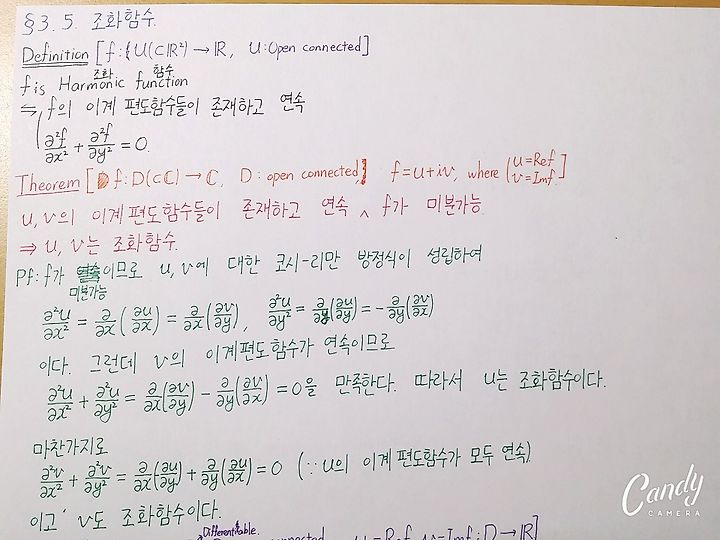 §3.5. 조화함수.
Definition [f:U(⊂ℝ²)→ℝ, U:Open connected]
조화 함수
f is Harmonic function
⇆ f의 이계 편도함수들이 존재하고 연속
∂²f/∂x² + ∂²f/∂y² = 0.
Theorem [f:D(⊂ℂ)→ℂ, D: open connected, f=u+iv, where (u=Ref v=Imf.]
u,v의 이계 편도함수들이 존재하고 연속 ∧ f가 미분가능.
⇒ u, v는 조화함수.
Pf: f가 이므로 u,v에 대한 코시-리만 방정식이 성립하여
미분가능
∂²u/∂x² = ∂/∂x(∂u/∂x) = ∂/∂x(∂v/∂y), ∂²u/∂y² = ∂/∂y(∂u/∂y) = -∂/∂y(∂v/∂x)
이다. 그런데 v의 이계편도함수가 연속이므로
∂²u/∂x² + ∂²u/∂y² = ∂/∂x(∂v/∂y) - ∂/∂y(∂v/∂x) = 0을 만족한다. 따라서 u는 조화함수이다.
마찬가지로
∂²v/∂x² + ∂²v/∂y² = ∂/∂x(∂u/∂y) + ∂/∂y(∂u/∂x) = 0 (∵u의 이계편도함수가 모두 연속)
이고 v도 조화함수이다.
Differentiable.
connected, u=Ref, v=Imf: D→ℝ]
Candy
CAMERA